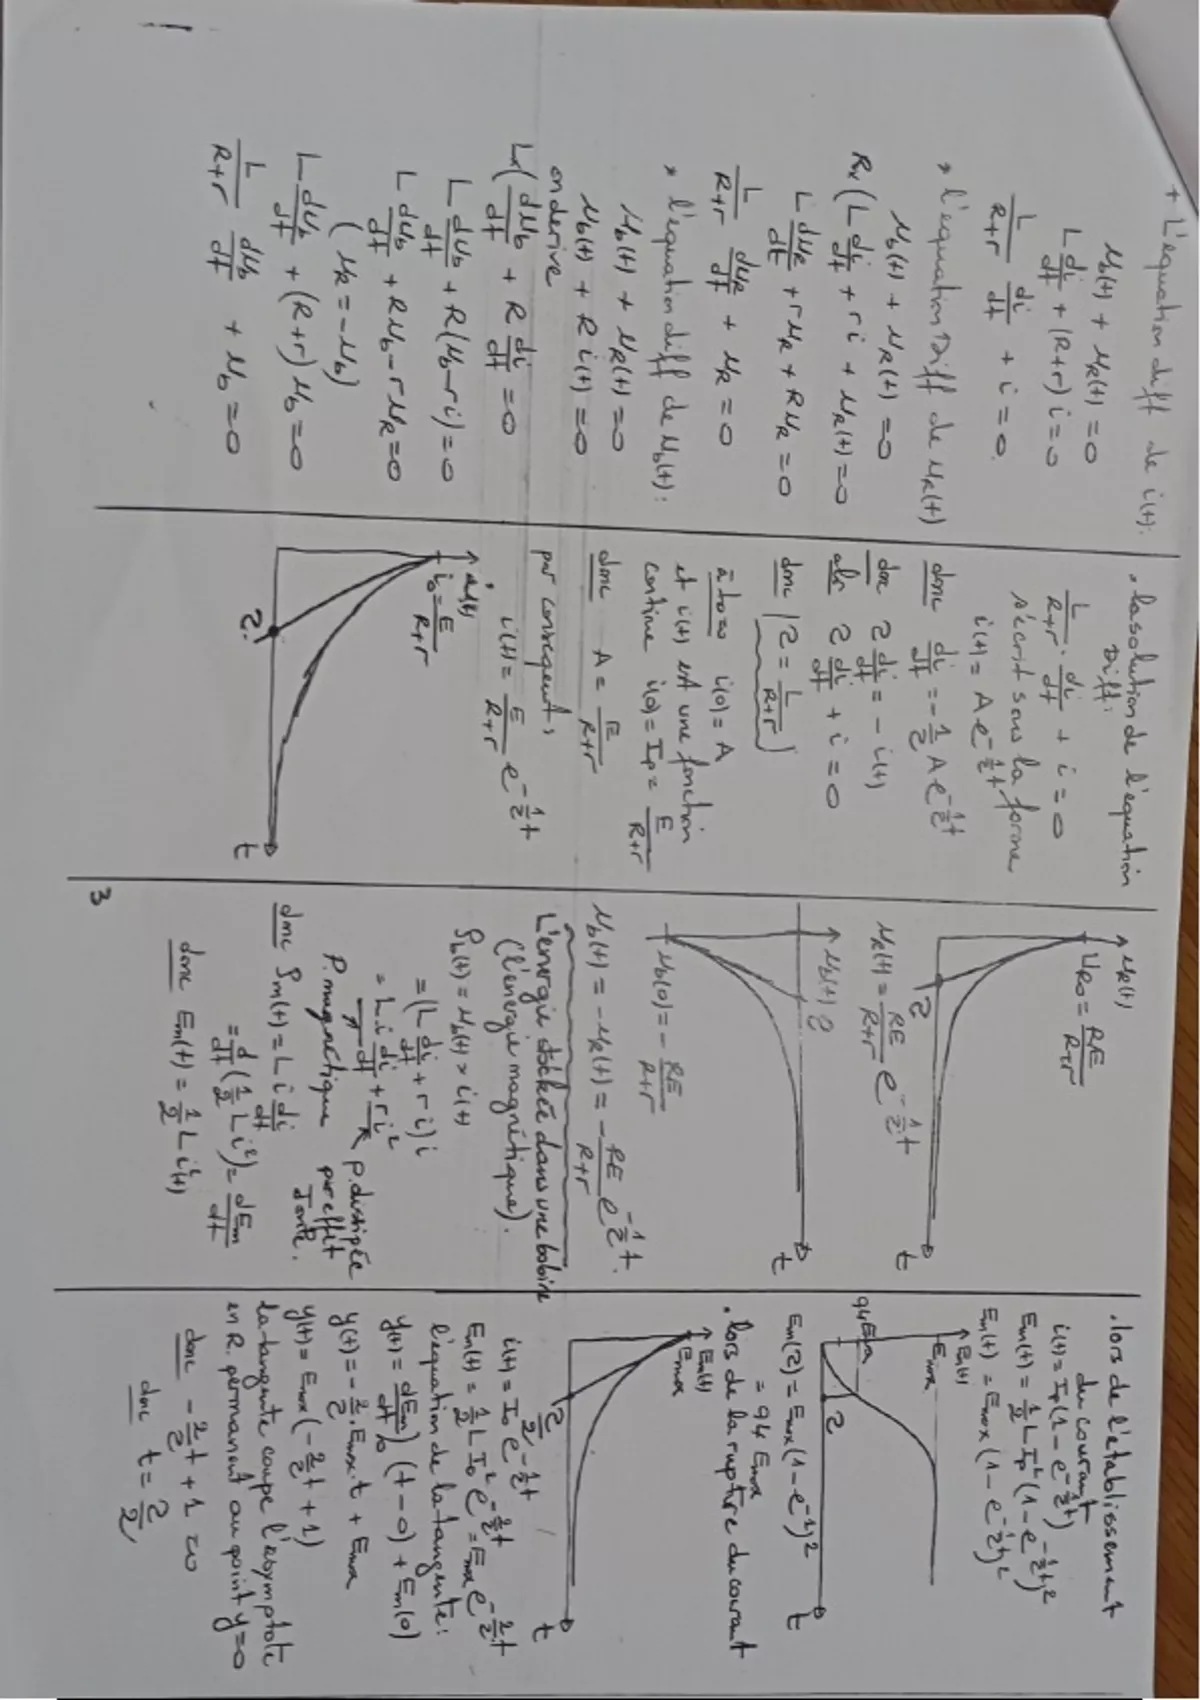 + L'equation diff de i(t):
u_b(t) + u_R(t) = 0
L di/dt + (R+r) i = 0
L/(R+r) di/dt + i = 0.
* l'equation Diff de u_R(t)
u_b(t) + u_R(t) = 0
R×( L di/dt + r i + u_R(t) = 0
L du_R/dt + r u_R + R u_R = 0
L/(R+r) du_R/dt + u_R = 0
* l'equation diff de u_b(t):
u_b(t) + u_R(t) = 0
u_b(t) + R i(t) = 0
on derive
L×( du_b/dt + R di/dt = 0
L du_b/dt + R(u_b - r i) = 0
L du_b/dt + R u_b - r u_R = 0
( u_R = -u_b)
L du_b/dt + (R+r) u_b = 0
L/(R+r) du_b/dt + u_b = 0
. la solution de l'equation
Diff:
L/(R+r) . di/dt + i = 0
s'écrit sous la forme
i(t) = A e^(-1/τ t)
donc di/dt = -1/τ A e^(-1/τ t)
donc τ di/dt = - i(t)
alr τ di/dt + i = 0
donc τ = L/(R+r)
à t=0 i(0) = A
et i(t) est une fonction
continue i(0) = Ip = E/(R+r)
donc A = E/(R+r)
par conséquent,
i(t) = E/(R+r) e^(-1/τ t)
i(t)
i_0 = E/(R+r)
τ
t
3
u_R(t)
U_R0 = RE/(R+r)
τ
t
u_R(t) = RE/(R+r) e^(-1/τ t)
u_b(t)
τ
t
u_b(0) = - RE/(R+r)
u_b(t) = -u_R(t) = - RE/(R+r) e^(-1/τ t).
L'énergie stockée dans une bobine
(l'énergie magnétique).
P_b(t) = u_b(t) × i(t)
= (L di/dt + r i) i
= L i di/dt + r i²
P. magnétique
P. dissipée
par effet
Joule.
donc P_m(t) = L i di/dt
= d/dt (1/2 L i²) = dEm/dt
donc Em(t) = 1/2 L i²(t)
. lors de l'etablissement
du courant
i(t) = Ip (1 - e^(-1/τ t))
Em(t) = 1/2 L Ip² (1 - e^(-1/τ t))²
Em(t) = Emax (1 - e^(-1/τ t))²
Em(t)
Emax
0,4 Emax
τ
t
Em(τ) = Emax (1 - e^-1)²
= 0,4 Emax
. lors de la rupture du courant
Em(t)
Emax
τ/2
t
i(t) = I_0 e^(-1/τ t)
Em(t) = 1/2 L I_0² e^(-2/τ t) = Emax e^(-2/τ t)
l'équation de la tangente:
y(t) = dEm/dt)_0 (t - 0) + Em(0)
y(t) = -2/τ . Emax . t + Emax
y(t) = Emax (-2/τ t + 1)
la tangente coupe l'asymptote
en R. permanant au point y=0
donc -2/τ t + 1 = 0
donc t = τ/2